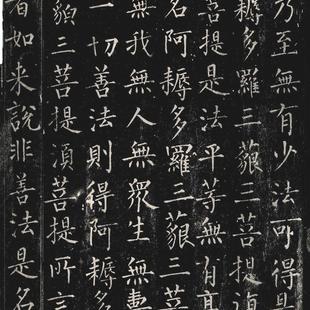 乃至無有少法可得是
耨多羅三藐三菩提復
菩提是法平等無有高
名阿耨多羅三藐三菩
無我無人無眾生無壽
一切善法則得阿耨多
藐三菩提須菩提所言
者如来說非善法是名